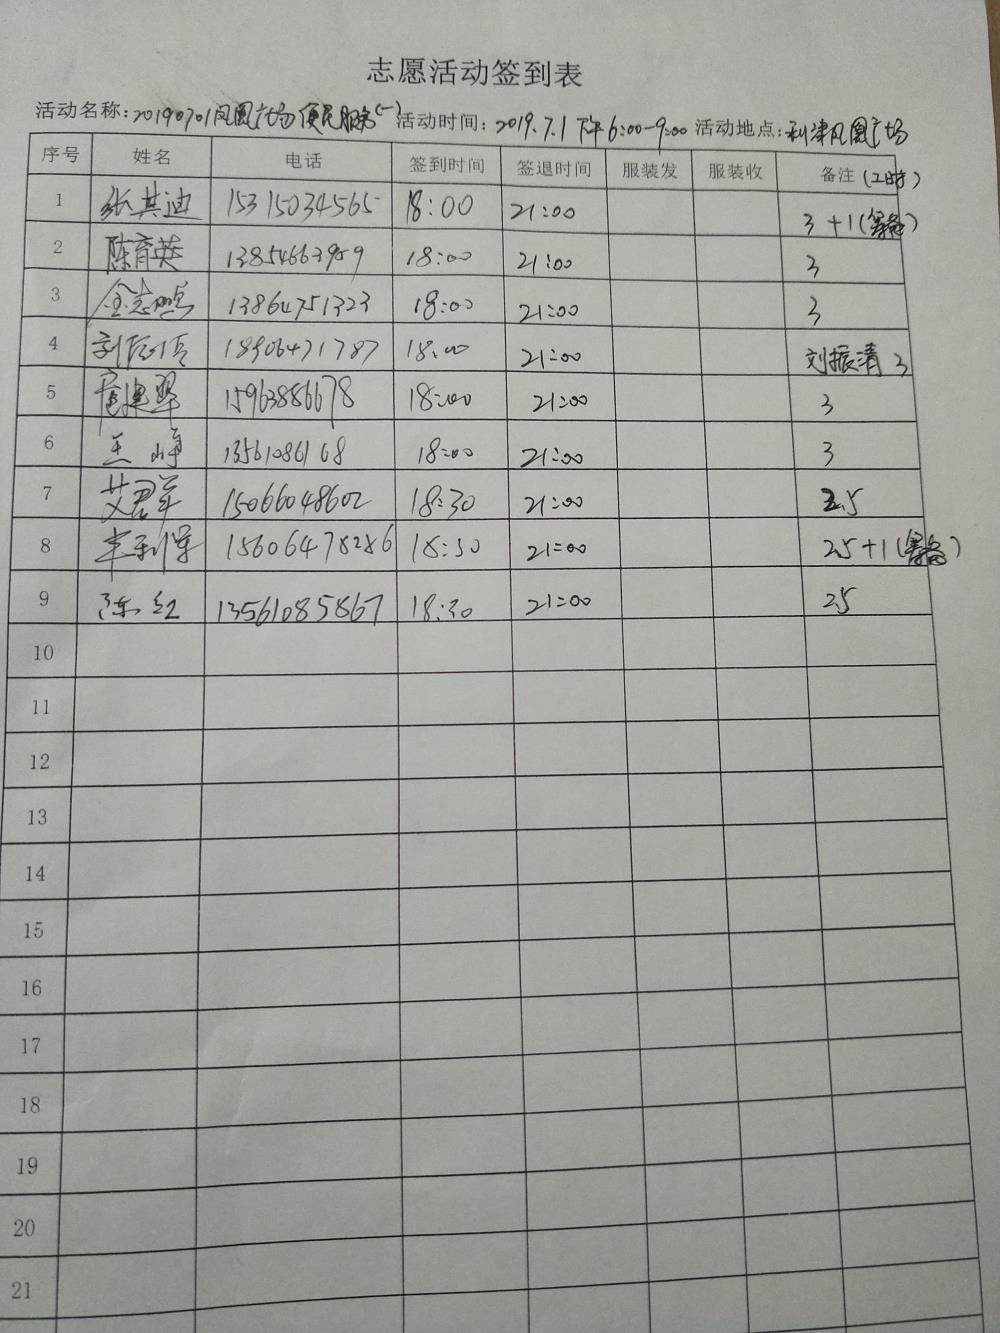 志愿活动签到表
活动名称:20190701凤凰广场便民服务(一) 活动时间:2019.7.1下午6:00-9:00 活动地点:利津凤凰广场
序号 姓名 电话 签到时间 签退时间 服装发 服装收 备注(工时)
1 张其迪 15315034565 18:00 21:00 3+1(筹备)
2 陈育英 13854663959 18:00 21:00 3
3 13864751323 18:00 21:00 3
4 18906471787 18:00 21:00 刘振清 3
5 15963886678 18:00 21:00 3
6 王峥 13561086168 18:00 21:00 3
7 艾君萍 15066048602 18:30 21:00 2.5
8 15606478286 18:30 21:00 2.5+1(筹备)
9 陈红 13561085867 18:30 21:00 2.5
10
11
12
13
14
15
16
17
18
19
20
21